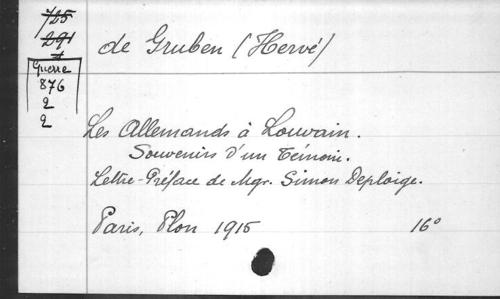 725
291
4
Guerre
876
2
2
de Gruben (Hervé)
Les Allemands à Louvain.
Souvenirs d'un Témoin.
Lettre-Préface de Mgr. Simon Deploige.
Paris, Plon 1915
16°